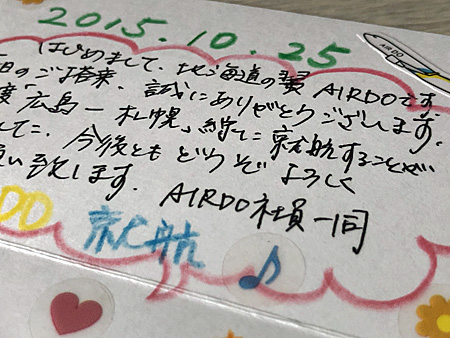 2015.10.25
はじめまして、北海道の翼 AIRDOです
日のご搭乗、誠にありがとうございます。
度「広島ー札幌」線に就航することが
して、今後ともどうぞよろしく
願い致します。
AIRDO社員一同
DO
就航
AIRDO